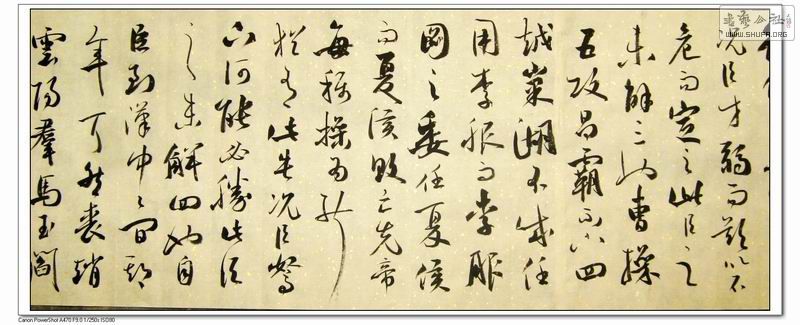 书艺公社
WWW.SHUFA.ORG
況臣才弱而欲以不
危而定之此臣之
未解三也曹操
五攻昌霸不下四
越巢湖不成任
用李服而李服
圖之委任夏侯
而夏侯敗亡先帝
每稱操為能
猶有此失況臣駑
下何能必勝此臣
之未解四也自
臣到漢中中間期
年耳然喪趙
雲陽羣馬玉閻
Canon PowerShot A470 F9.0 1/250s ISO80